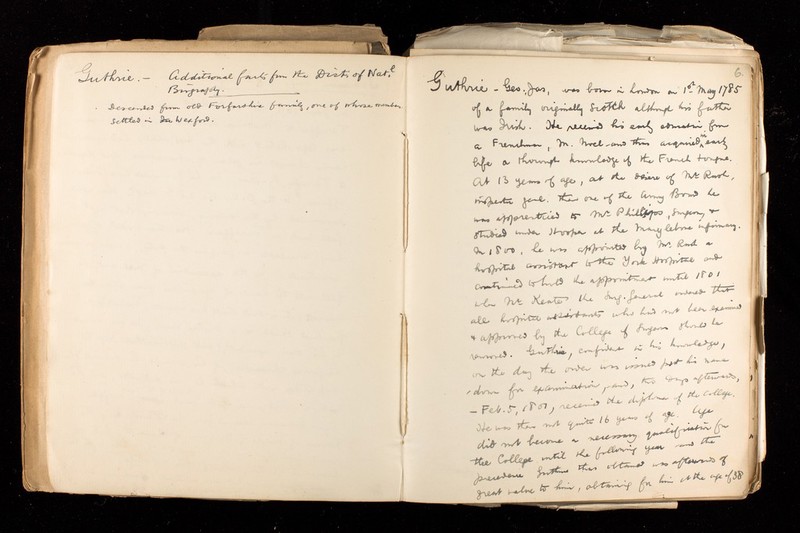 Guthrie. - Additional facts from the Dict. of Nat.l
Biography.
Descended from old Forfarshire family, one of whose members
settled in Wexford.
6.
Guthrie - Geo. Jas, was born in London on 1st May 1785
of a family originally Scotch although his father
was Irish. He received his early education from
a Frenchman, M. Noel - and thus acquired in early
life a thorough knowledge of the French tongue.
At 13 years of age, at the desire of Mr Rush,
inspector genl. then one of the Army Board he
was apprenticed to Mr Phillips, Surgeon, &
studied under Hooper at the Marylebone infirmary.
In 1800, he was appointed by Mr. Rush a
hospital assistant to the York Hospital and
continued to hold the appointment until 1801
when Mr Keate the Surg. General ordered that
all hospital assistants who had not been examined
& approved by the College of Surgeons should be
removed. Guthrie, confident in his knowledge,
on the day the order was issued put his name
down for examination, and, two days afterwards,
- Feb. 5, 1801, received the diploma of the College.
He was then not quite 16 years of age. Age
did not become a necessary qualification for
the College until the following year and the
precedence Guthrie thus obtained was afterwards of
great value to him, obtaining for him at the age of 38